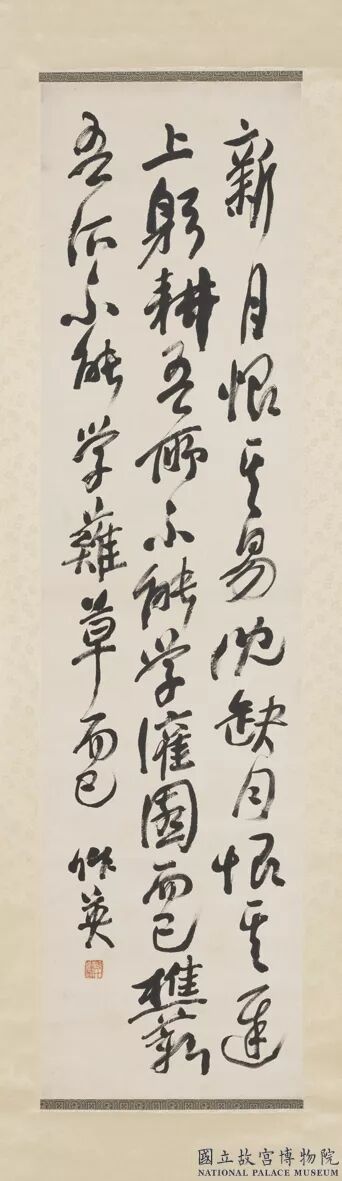 新月恨其易沈缺月恨其遲
上躬耕吾所不能學灌園而已樵薪
吾所不能學薙草而已 作英
國立故宮博物院
NATIONAL PALACE MUSEUM